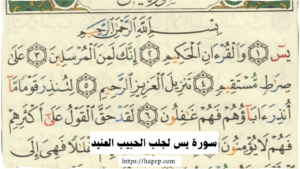 بِسْمِ اللَّهِ الرَّحْمَٰنِ الرَّحِيمِ
يسٓ ١ وَالْقُرْءَانِ الْحَكِيمِ ٢ إِنَّكَ لَمِنَ الْمُرْسَلِينَ ٣ عَلَىٰ
صِرَاطٍ مُّسْتَقِيمٍ ٤ تَنزِيلَ الْعَزِيزِ الرَّحِيمِ ٥ لِتُنذِرَ قَوْمًا مَّا
أُنذِرَ ءَابَاؤُهُمْ فَهُمْ غَافِلُونَ ٦ لَقَدْ حَقَّ الْقَوْلُ عَلَىٰ أَكْثَرِهِمْ
فَهُمْ لَا يُؤْمِنُونَ
فَهِيَ إِلَى
سورة يس لجلب الحبيب العنيد
https://hapep.com